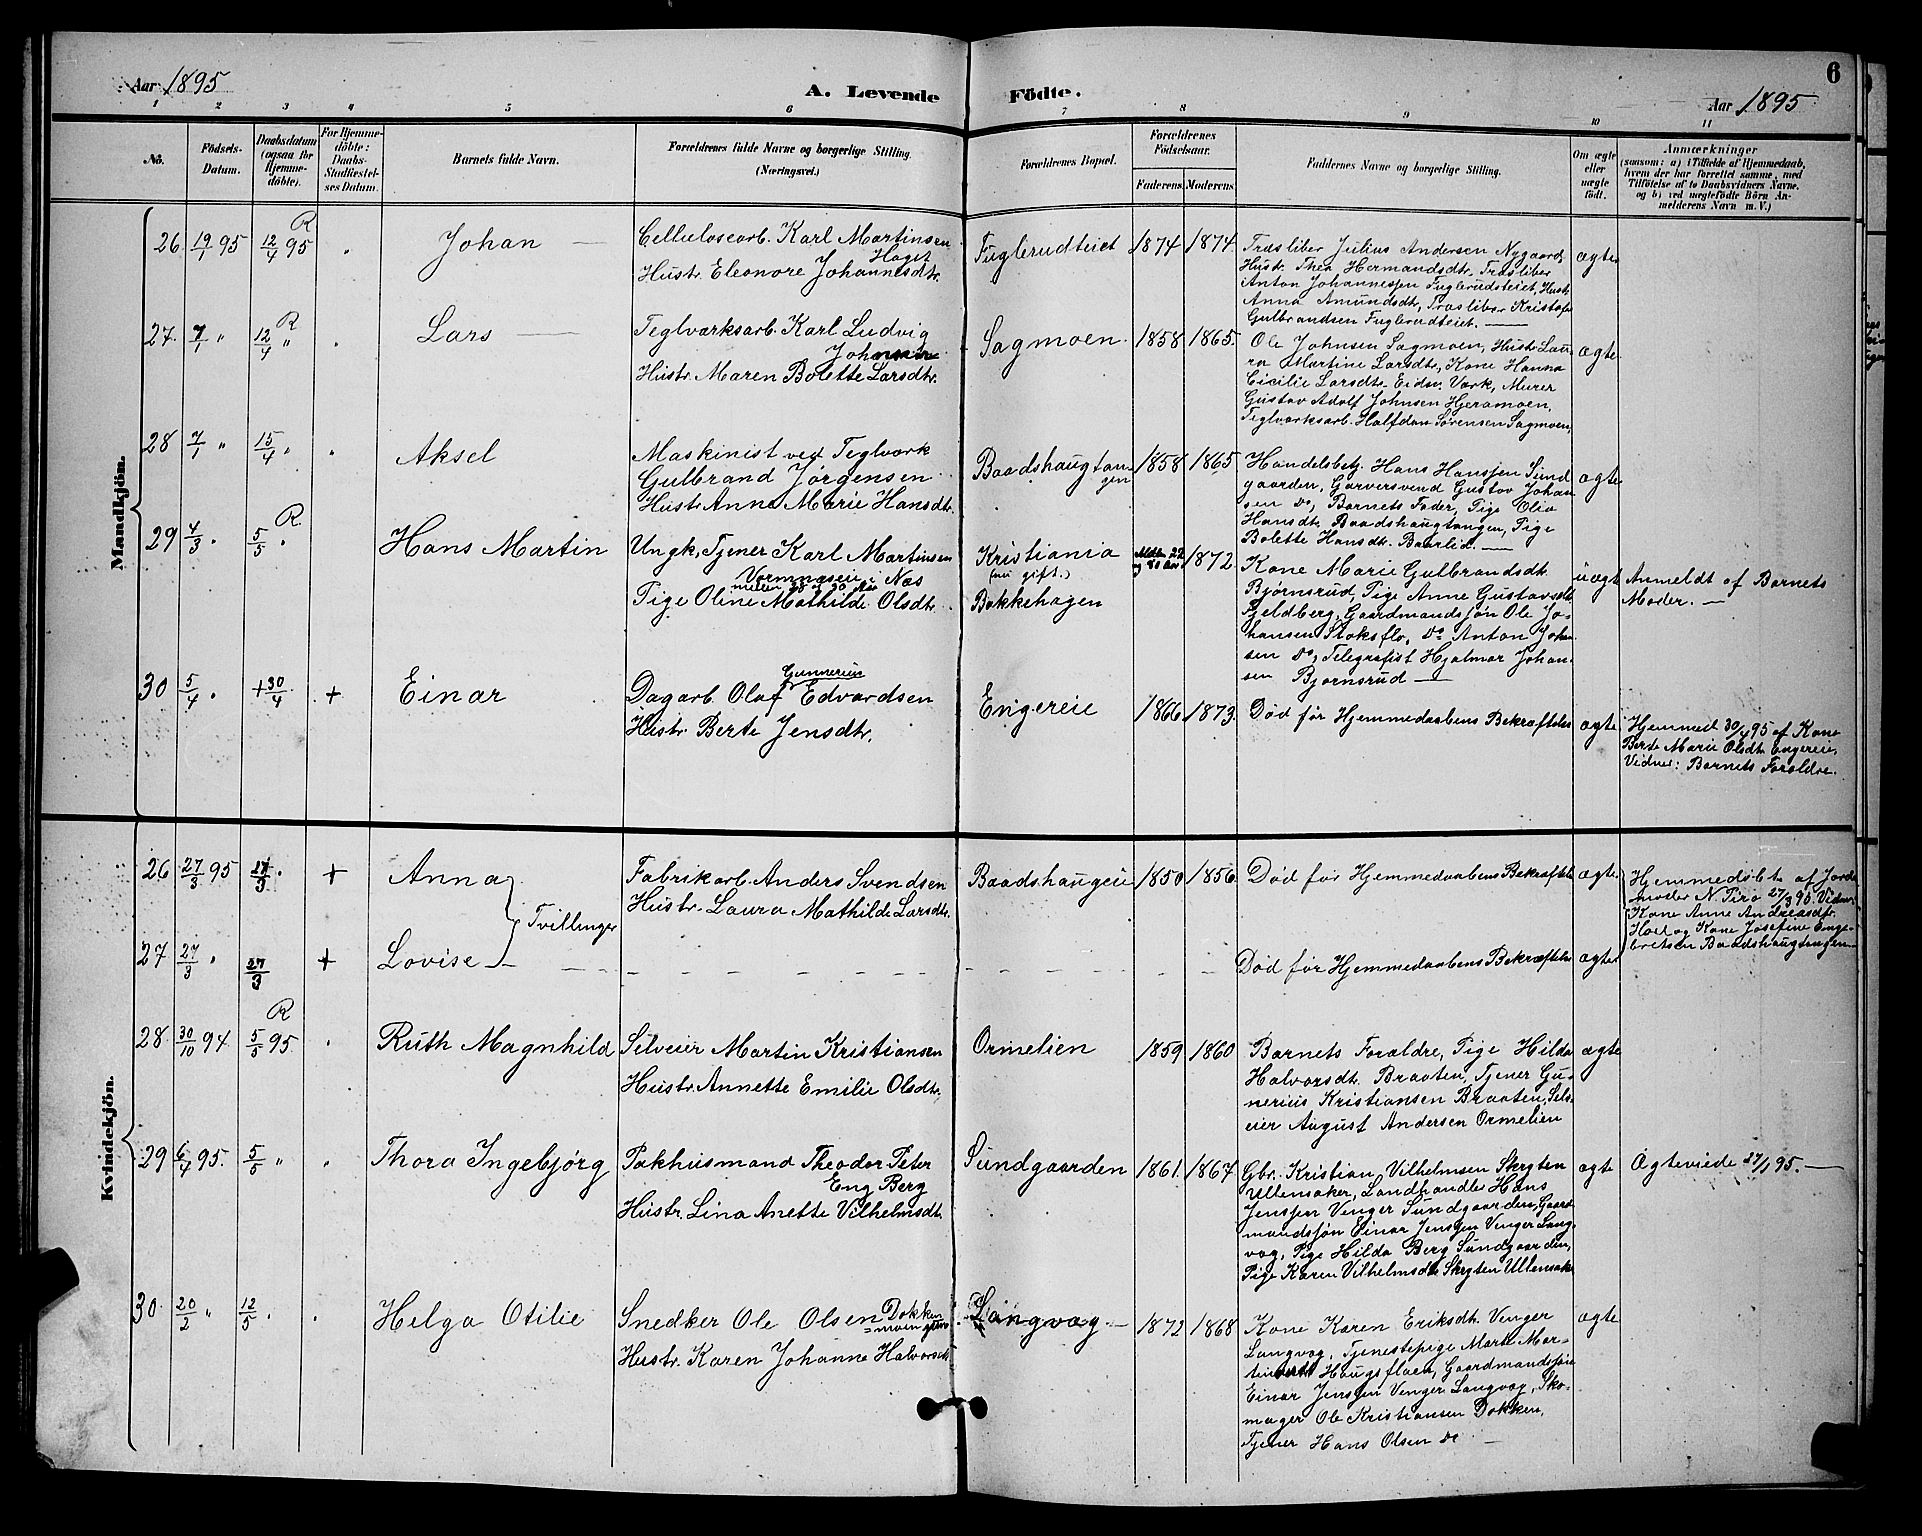 Aar 1895
A. Levende Födte.
Aar 1895
6
1 2 3 4 5 6 7 8 9 10 11
No.
Födsels-
Datum.
Daabsdatum
(ogsaa for
Hjemme-
döbte).
For Hjemme-
döbte:
Daabs-
Stadfæstel-
ses Datum.
Barnets fulde Navn.
Forældrenes fulde Navne og borgerlige Stilling.
(Næringsvei.)
Forældrenes Bopæl.
Forældrenes
Födselsaar.
Faderens. Moderens.
Faddernes Navne og borgerlige Stilling.
Om ægte
eller
uægte
født.
Anmærkninger
(saasom: a) i Tilfælde af Hjemmedaab,
hvem der har forrettet samme, med
Tilföielse af to Daabsvidners Navne.
og b) ved uægtefödte Börn An-
melderens Navn m. V.)
Mandkjön.
26 19/1 95 12/4 95 R
Johan
Celluloscarb. Karl Martinsen
Haget
Hustr. Eleonore Johannesdtr.
Fuglerudteiet 1874 1874
Træsliber Julius Andersen Nygaard,
Hustr. Thea Hermandsdtr., Træsliber
Anton Johannesen Fuglerudteiet, Hustr.
Anna Amundsdtr, Træsliber Kristofer
Gulbrandsen Fuglerudteiet.
ægte
27. 7/1 " 12/4 " R
Lars
Teglværksarb. Karl Ludvig
Johnsen
Hustr. Maren Bolette Larsdtr.
Sagmoen. 1858 1865.
Ole Johnsen Sagmoen, Hustr. Lau-
ra Martine Larsdtr, Kone Hanna
Cicilie Larsdtr. Eidsv. Værk, Murer
Gustav Adolf Johnsen Hjeramoen,
Teglværksarb. Halfdan Sørensen Sagmoen,
ægte
28 7/1 " 15/4 "
Aksel
Maskinist ved Teglværk
Gulbrand Jørgensen
Hustr. Anne Marie Hansdtr.
Baadshaugtan-
gen
1858 1865
Handelsbetj. Hans Hansen Sund
gaarden, Garversvend Gustav Johan
sen Do, Barnets Fader, Pige Olia
Hansdtr. Baadshaugtangen, Pige
Bolette Hansdtr. Baarlid.
ægte
29 4/3 " 5/5 " R
Hans Martin
Ungk, Tjener Karl Martinsen
Vormnæsen i Næs
mellem 28 og 30 Aar
Pige Oline Mathilde Olsdtr.
Kristiania
(nu gift.)
Bakkehagen
1872
Kone Marie Gulbrandsdt.
Bjørnsrud, Pige Anne Gustavsdtr.
Fjeldberg, Gaardmandssøn Ole Jo-
hansen Stoksflo, Do Anton Johan
sen Do, Telegrafist Hjalmar Johan-
sen Bjørnsrud
uægt
Anmeldt af Barnets
Moder.
30 5/4 " + 30/4 +
Einar
Gunnerius
Dagarb. Olaf Edvardsen
Hustr. Berte Jensdtr.
Engereie 1866 1873.
Død før Hjemmedaabens Bekræftelse
ægte
Hjemmed. 30/4 95 af Kone
Berte Marie Olsdtr. Engereie,
Vidner: Barnets Forældre.
Kvindekjön.
26 27/3 95 27/3 +
Anna
Fabrikarb. Anders Svendsen
Hustr. Laura Mathilde Larsdtr.
Tvillinger
Baadshaugeie 1850 1856.
Død før Hjemmedaabens Bekræftelse
ægte
Hjemmedøbt af Jorde
moder N. Tirø 27/3 95. Vidner
Kone Anne Andreasdtr.
Hoel og Kone Josefine Enge-
bretsen Baadshaugtangen
27 27/3 " 27/3 +
Lovise
Død før Hjemmedaabens Bekræftelse
ægte
28 30/10 94 5/5 95 R
Ruth Magnhild
Selveier Martin Kristiansen
Hustr. Annette Emilie Olsdtr.
Ormelien 1859 1860
Barnets Forældre, Pige Hilda
Halvorsdtr. Braaten, Tjener Gu-
nerius Kristiansen Braaten, Selv-
eier August Andersen Ormelien
ægte
29 6/4 95. 5/5 "
Thora Ingebjørg
Pakhusmand Theodor Peter
Eng Berg
Hustr. Lina Anette Vilhelmsdt.
Sundgaarden 1861 1864
Gbr. Kristian Vilhelmsen Skryten
Ullensaker, Landhandler Hans
Jensen Venger Sundgaarden, Gaard
mandssøn Einar Jensen Venger Lang-
vag, Pige Hilda Berg Sundgaarden,
Pige Karen Vilhelmsdtr Skryten Ullensaker
ægte
Ægteviede 27/1 95.
30 20/2 " 12/5 "
Helga Otilie
Snedker Ole Olsen Dokken
Hustr. Karen Johanne Halvorsdtr
Langvag 1872 1868
Kone Karen Eriksdtr. Venger
Langvag, Tjenestepige Marte Mar-
tinsdtr Haugsflaen, Gaardmandssøn
Einar Jensen Venger Langvag, Sko-
mager Ole Kristiansen Dokken,
Tjener Hans Olsen Do
ægte